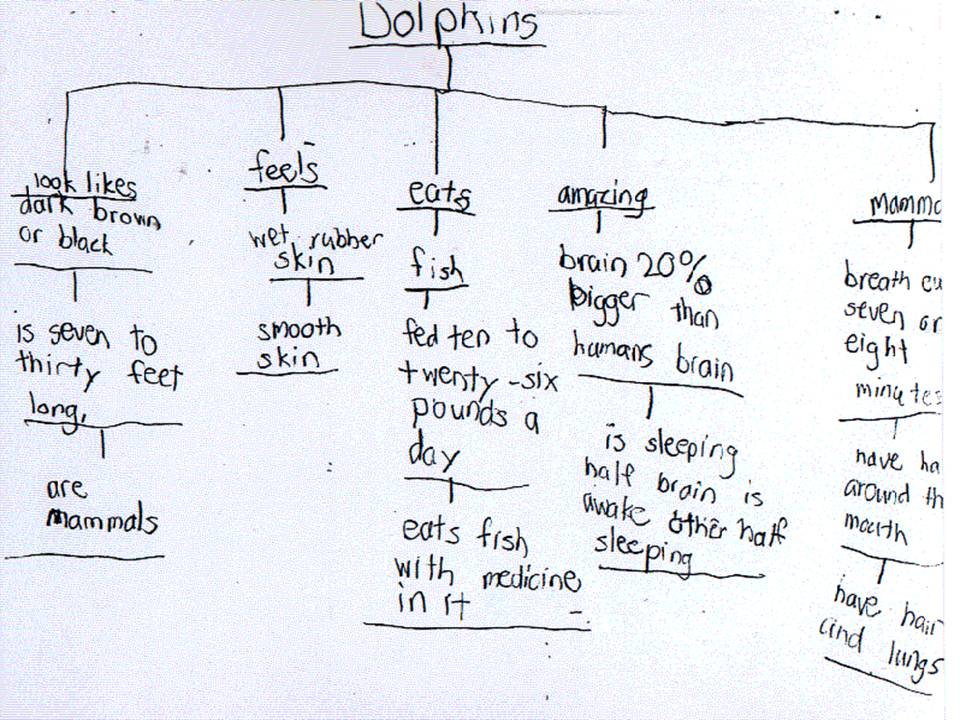 Dolphins
look likes
dark brown
or black
is seven to
thirty feet
long,
are
mammals
feels
wet rubber
skin
smooth
skin
eats
fish
fed ten to
twenty-six
pounds a
day
eats fish
with medicine
in it
amazing
brain 20%
bigger than
humans brain
is sleeping
half brain is
awake other half
sleeping
breath
seven or
eight
minutes
have
around
mouth
have hair
and lungs